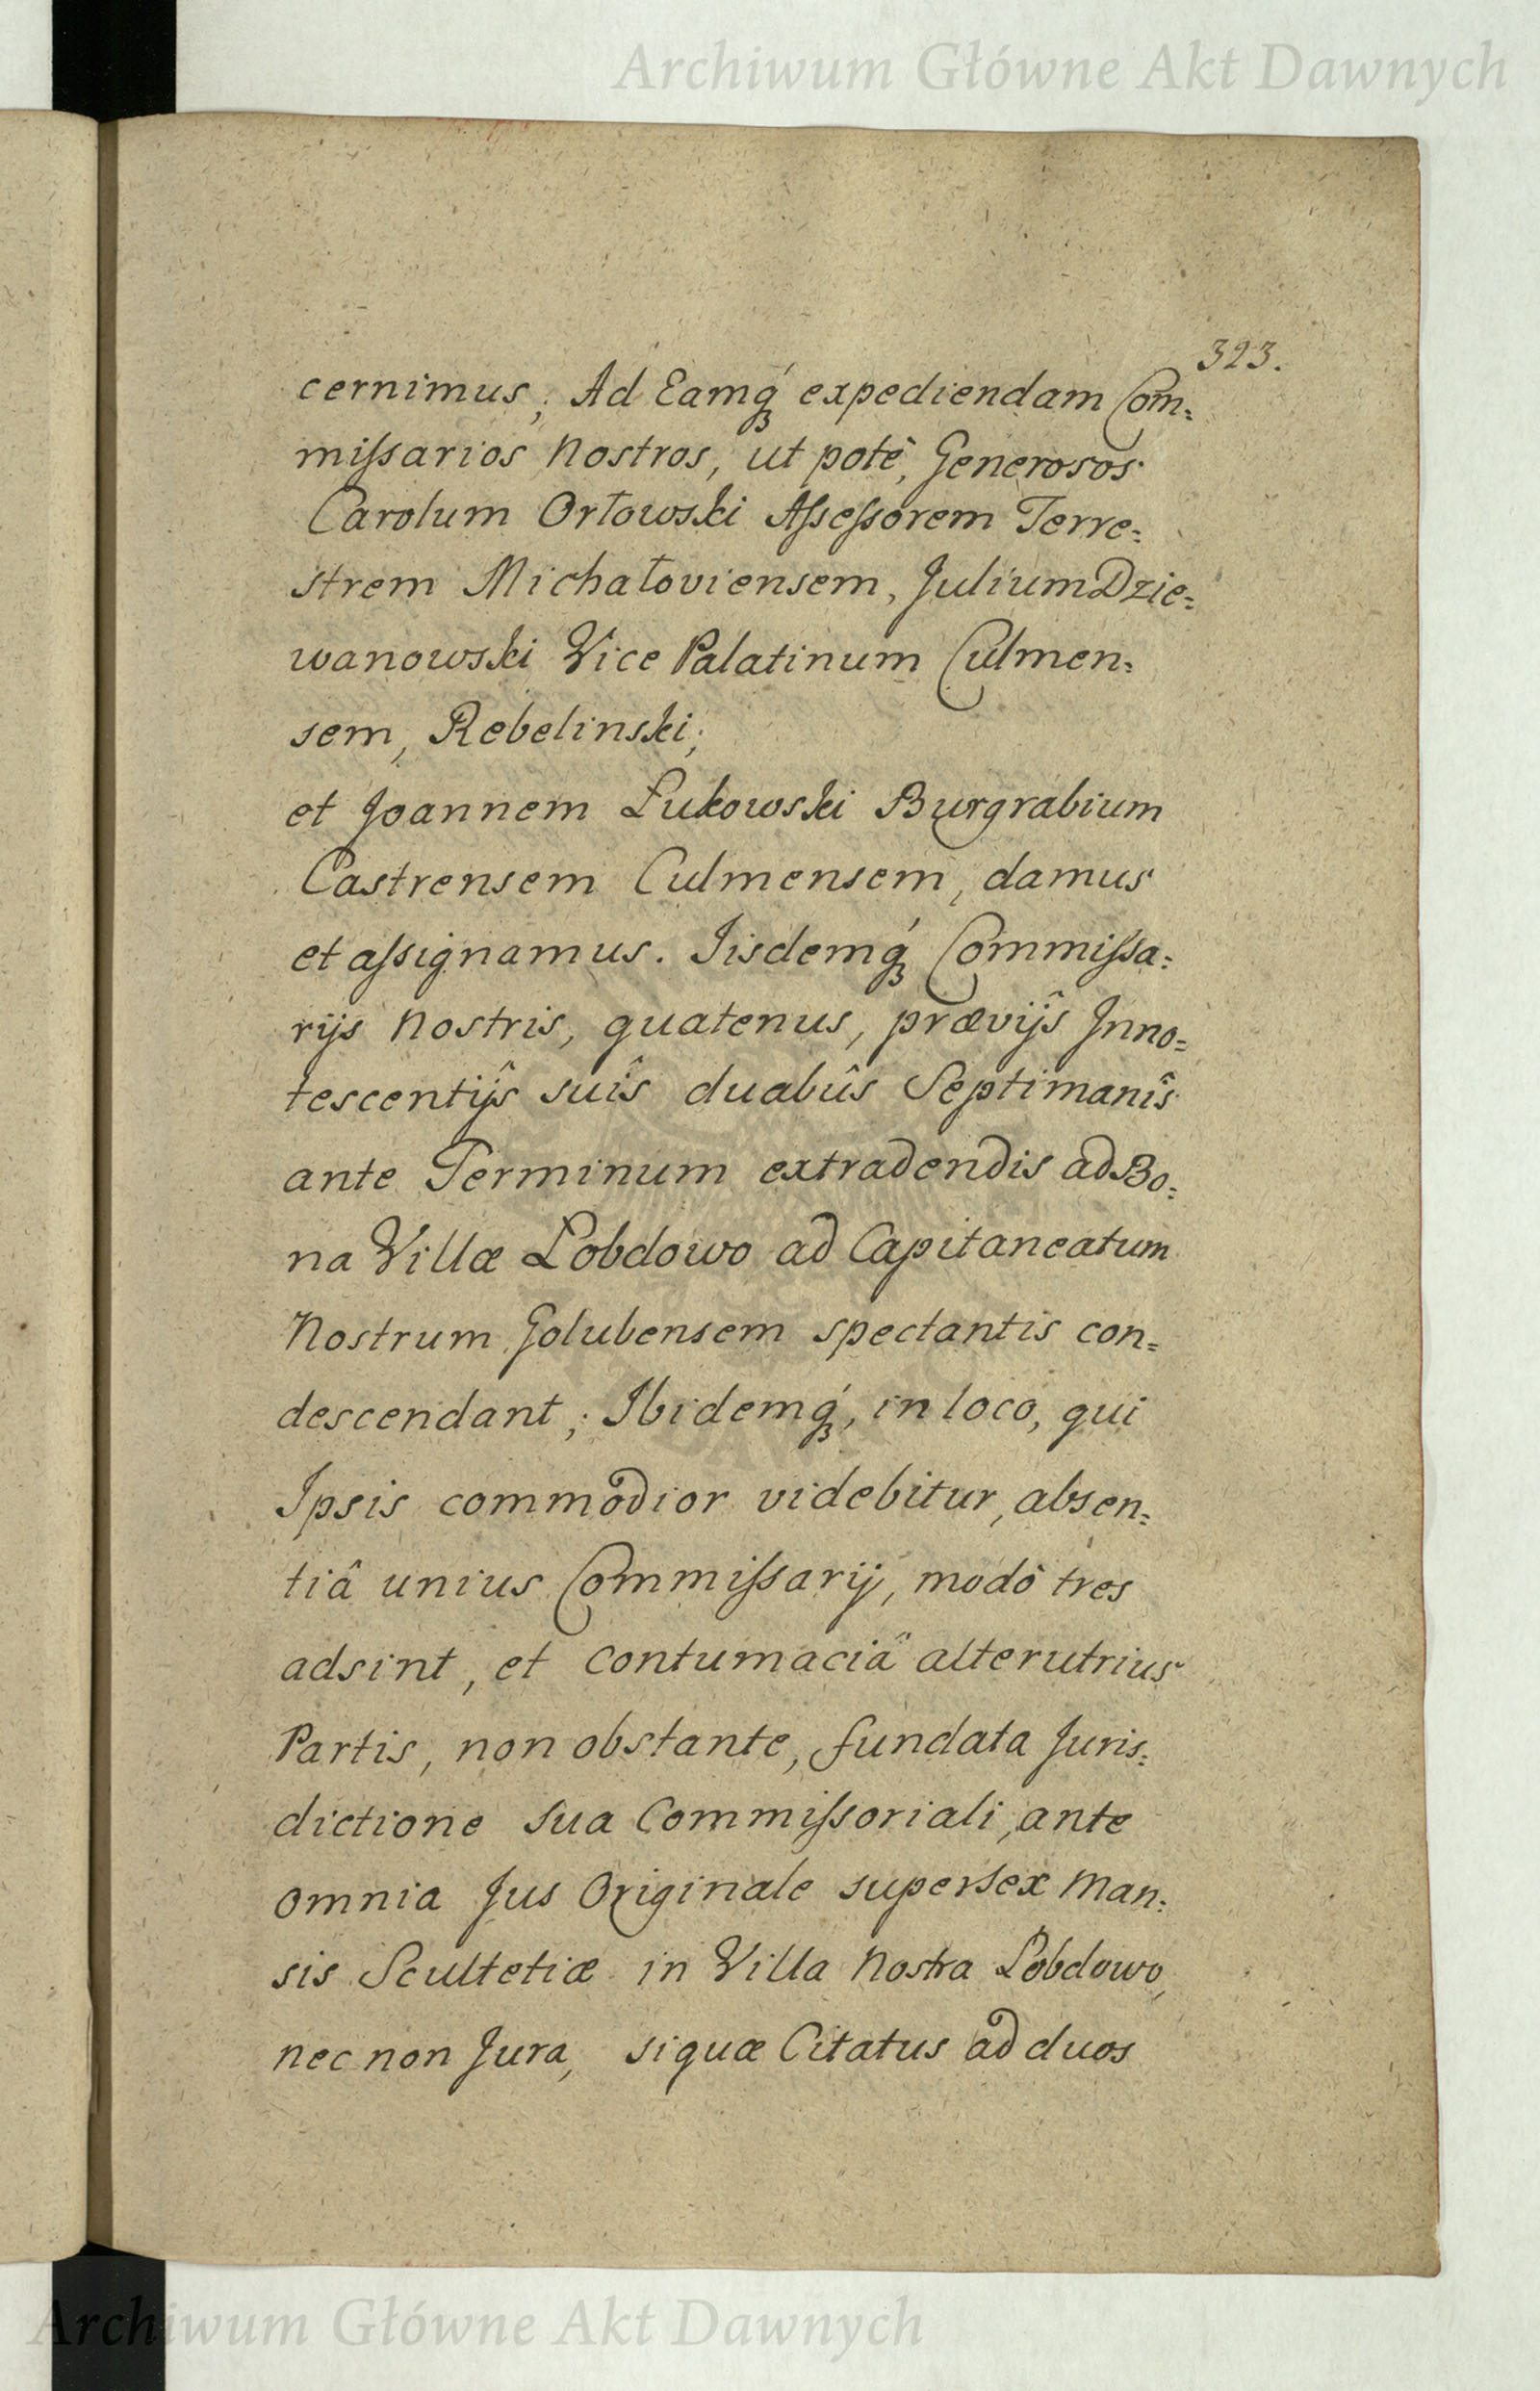 Archiwum Główne Akt Dawnych
323.
cernimus; Ad Eamq́; expediendam Com=
miſsarios Nostros, ut potè, Generosos
Carolum Orłowski Aſseſsorem Terre=
strem Michałoviensem, Julium Dzie=
wanowski Vice Palatinum Culmen=
sem, Rebelinski;
et Joannem Łukowski Burgrabium
Castrensem Culmensem, damus
et aſsignamus. Iisdemq́; Commiſsa=
rijs Nostris, quatenus, prævijs̑ Inno=
tescentijs̑ suîs duabûs Septimanîs
ante Terminum extradendis ad Bo=
na Villæ Łobdowo ad Capitaneatum
Nostrum Golubensem spectantis con=
descendant; Ibidemq́;, in loco, qui
Ipsis commodior videbitur, absen=
tiâ unius Commiſsarij, modò tres
adsint, et Contumaciâ alterutrius
Partis, non obstante, fundata Juris=
dictione sua Commiſsoriali, ante
omnia Jus Originale super sex Man=
sis Scultetiæ in Villa Nostra Łobdowo,
nec non Jura, siquæ Citatus ad duos
Archiwum Główne Akt Dawnych